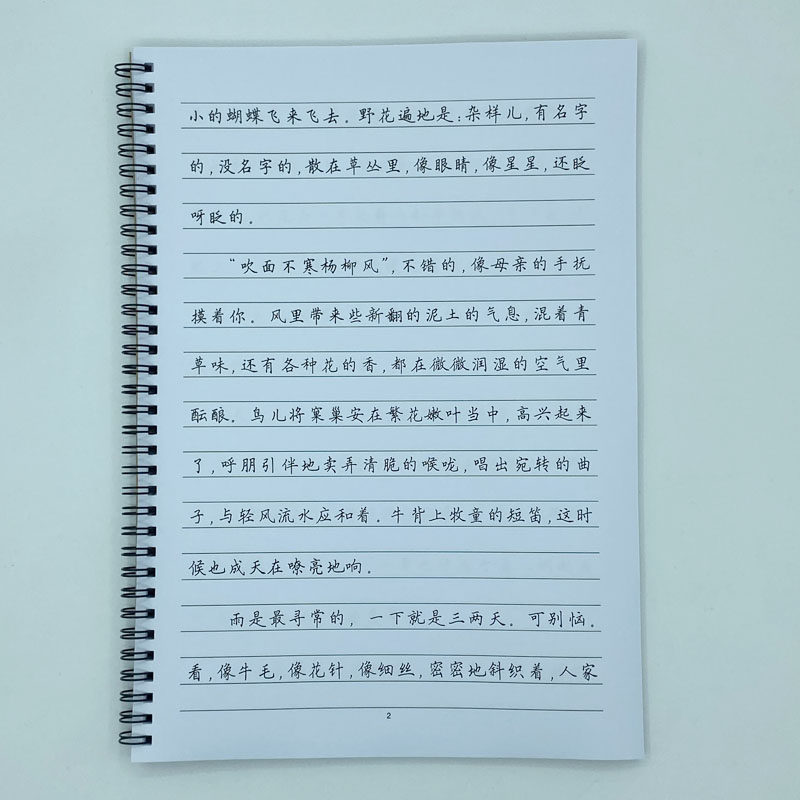 小的蝴蝶飞来飞去。野花遍地是：杂样儿，有名字
的，没名字的，散在草丛里，像眼睛，像星星，还眨
呀眨的。
“吹面不寒杨柳风”，不错的，像母亲的手抚
摸着你。风里带来些新翻的泥土的气息，混着青
草味，还有各种花的香，都在微微润湿的空气里
酝酿。鸟儿将窠巢安在繁花嫩叶当中，高兴起来
了，呼朋引伴地卖弄清脆的喉咙，唱出宛转的曲
子，与轻风流水应和着。牛背上牧童的短笛，这时
候也成天在嘹亮地响。
雨是最寻常的，一下就是三两天。可别恼。
看，像牛毛，像花针，像细丝，密密地斜织着，人家
2